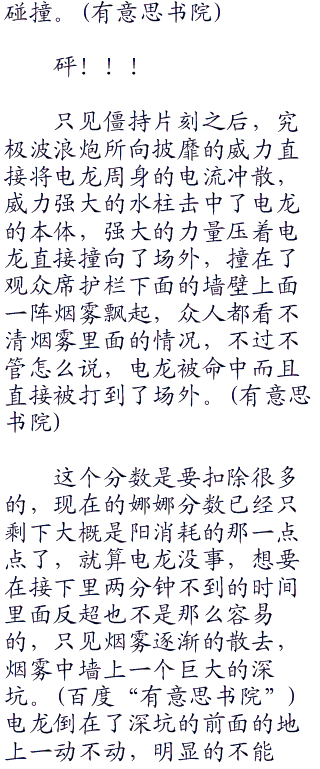 碰撞。(有意思书院)
砰！！！
只见僵持片刻之后，究
极波浪炮所向披靡的威力直
接将电龙周身的电流冲散，
威力强大的水柱击中了电龙
的本体，强大的力量压着电
龙直接撞向了场外，撞在了
观众席护栏下面的墙壁上面
一阵烟雾飘起，众人都看不
清烟雾里面的情况，不过不
管怎么说，电龙被命中而且
直接被打到了场外。(有意思
书院)
这个分数是要扣除很多
的，现在的娜娜分数已经只
剩下大概是阳消耗的那一点
点了，就算电龙没事，想要
在接下里两分钟不到的时间
里面反超也不是那么容易
的，只见烟雾逐渐的散去，
烟雾中墙上一个巨大的深
坑。(百度“有意思书院”)
电龙倒在了深坑的前面的地
上一动不动，明显的不能